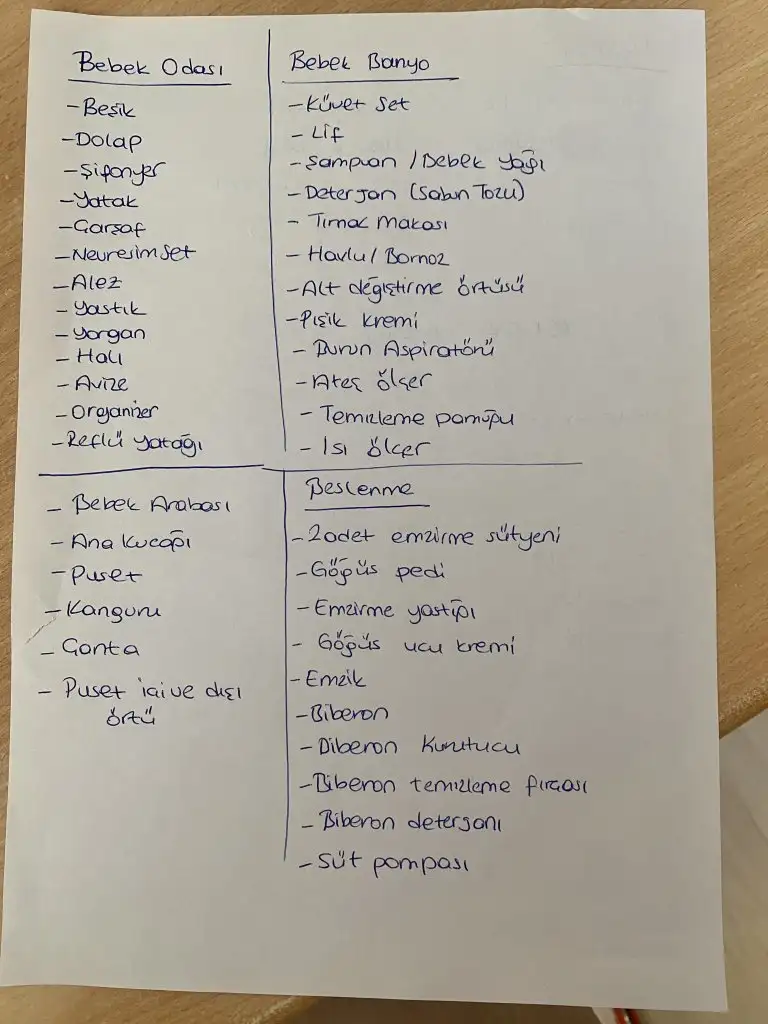 Bebek Odası
- Beşik
- Dolap
- Şifonyer
- Yatak
- Çarşaf
- Nevresim Set
- Alez
- Yastık
- Yorgan
- Halı
- Avize
- Organizer
- Reflü yatağı
Bebek Banyo
- Küvet Set
- Lif
- Şampuan / Bebek yağı
- Deterjan (Sabun Tozu)
- Tırnak Makası
- Havlu / Bornoz
- Alt değiştirme örtüsü
- Pişik kremi
- Burun Aspiratörü
- Ateş ölçer
- Temizleme pamuğu
- Isı ölçer
- Bebek Arabası
- Ana kucağı
- Puset
- Kanguru
- Çanta
- Puset içi ve dışı
örtü
Beslenme
- 2 adet emzirme sütyeni
- Göğüs pedi
- Emzirme yastığı
- Göğüs ucu kremi
- Emzik
- Biberon
- Biberon Kurutucu
- Biberon temizleme fırçası
- Biberon deterjanı
- Süt pompası